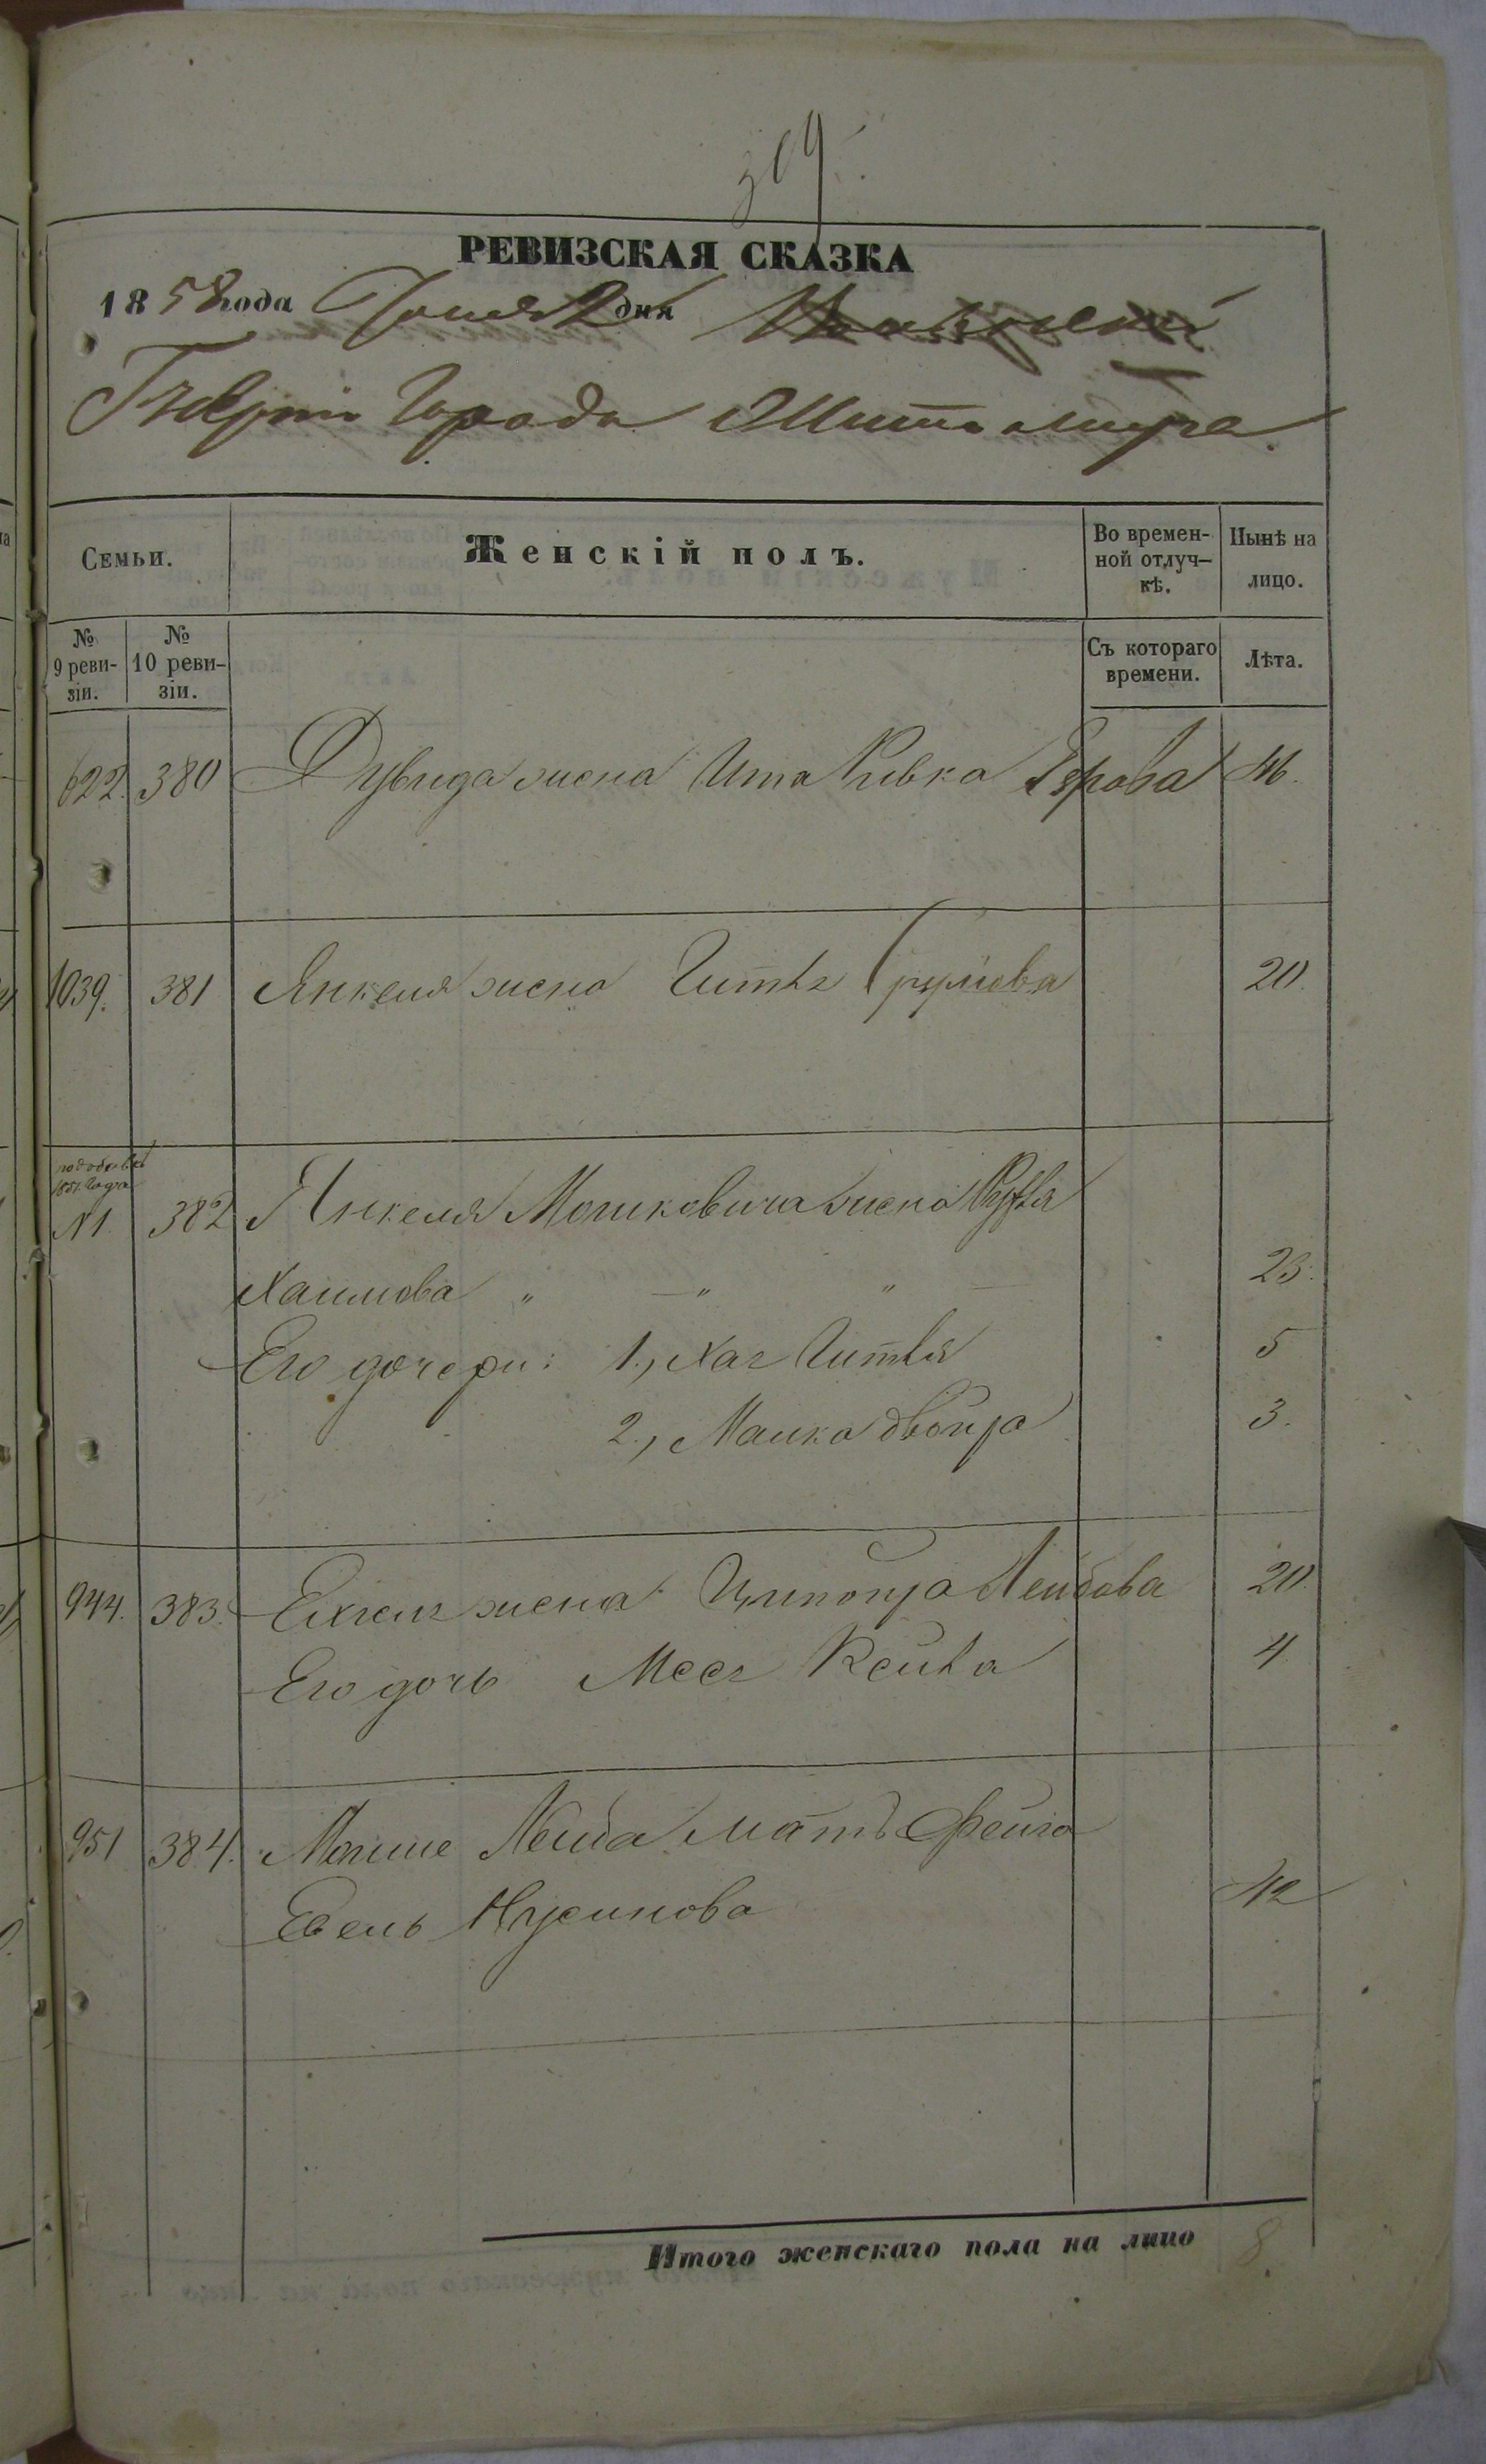 309.
РЕВИЗСКАЯ СКАЗКА
1858 года Іюня 2 дня
Губерніи Города Житомира
Семьи.
Женскій полъ.
Во времен-
ной отлуч-
кѣ.
Нынѣ на
лицо.
№
9 реви-
зіи.
№
10 реви-
зіи.
Съ котораго
времени.
Лѣта.
622. 380 Дувида жена Ита Ривка 46.
1039. 381 Янкеля жена Гитля 20.
1851 года
N1. 382 Янкеля Мошковича жена
Хаимова " — " " — 23.
Его дочери: 1., Хая Гитля 5
2., Малка Двойра 3.
944. 383. жена Ципойра Лейбова 20.
Его дочь 4
951 384. Мошке Лейба мать Фейга
Нусинова 42
Итого женскаго пола на лицо 8.